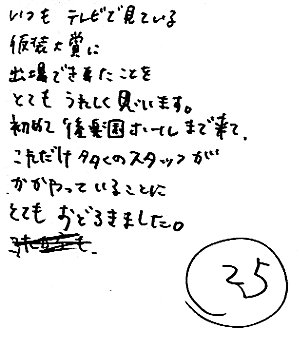 いつも テレビで見ている
仮装大賞に
出場できたことを
とても うれしく思います。
初めて 後楽園ホールまで来て、
これだけ多くのスタッフが
かかわっていることに
とても おどろきました。
25